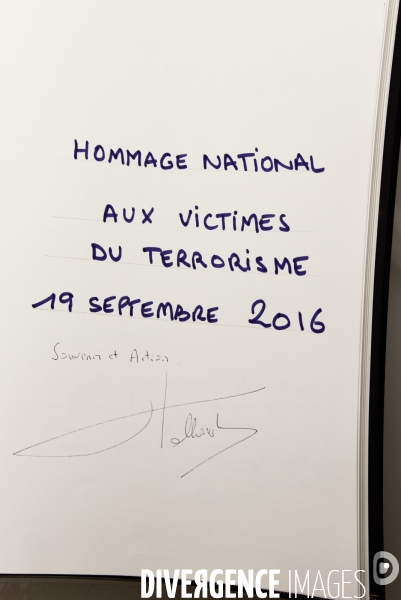 HOMMAGE NATIONAL
AUX VICTIMES
DU TERRORISME
19 SEPTEMBRE 2016
Souvenir et Action.
DIVERGENCE IMAGES